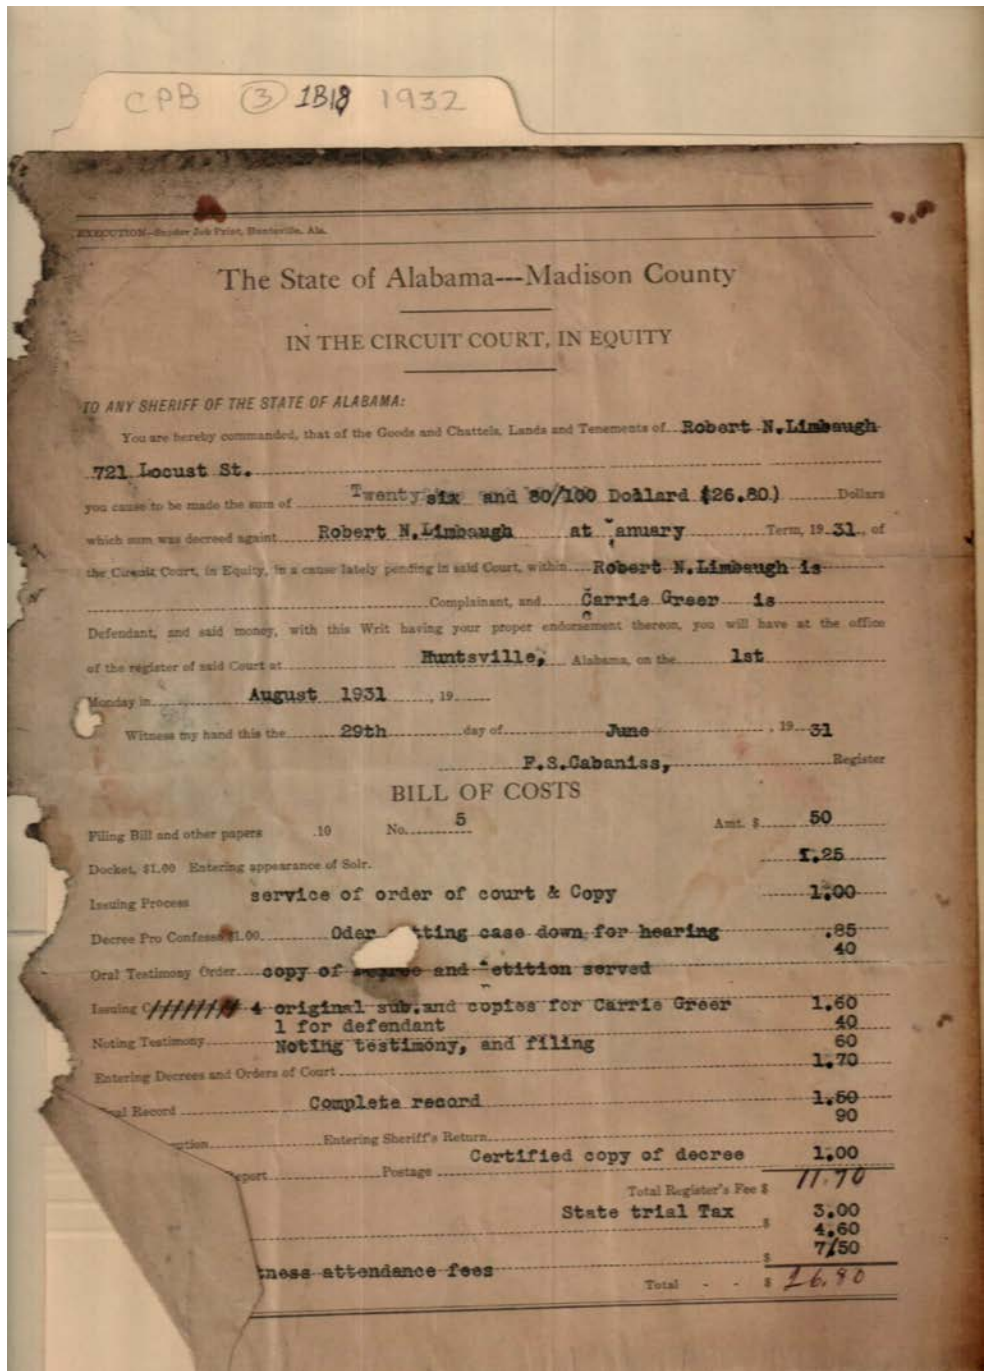 CPB ③ 1B18 1932
EXECUTION—Snyder Job Print, Huntsville, Ala.
The State of Alabama---Madison County
IN THE CIRCUIT COURT, IN EQUITY
TO ANY SHERIFF OF THE STATE OF ALABAMA:
You are hereby commanded, that of the Goods and Chattels, Lands and Tenements of Robert N.Limbaugh
721 Locust St.
you cause to be made the sum of Twenty six and 80/100 Dollard $26.80.) Dollars
which sum was decreed againt Robert N.Limbaugh at anuary Term, 19 31, of
the Circuit Court, in Equity, in a cause lately pending in said Court, within Robert N.Limbaugh is
Complainant, and Carrie Greer is
Defendant, and said money, with this Writ having your proper endorsement thereon, you will have at the office
of the register of said Court at Huntsville, Alabama, on the 1st
Monday in August 1931, 19
Witness my hand this the 29th day of June, 19 31
F.S.Cabaniss, Register
BILL OF COSTS
Filing Bill and other papers .10 No. 5 Amt. $ 50
Docket, $1.00 Entering appearance of Solr. 1.25
Issuing Process service of order of court & Copy 1.00
Decree Pro Confesso $1.00 Oder tting case down for hearing .85
40
Oral Testimony Order copy of and etition served
Issuing 4 original sub.and copies for Carrie Greer 1.60
1 for defendant 40
Noting Testimony Noting testimony, and filing 60
Entering Decrees and Orders of Court 1.70
Record Complete record 1.50
90
Entering Sheriff's Return
Certified copy of decree 1.00
port Postage
Total Register's Fee $ 11.70
State trial Tax 3.00
$ 4.60
$ 7/50
tness attendance fees
Total - - $ 26.80